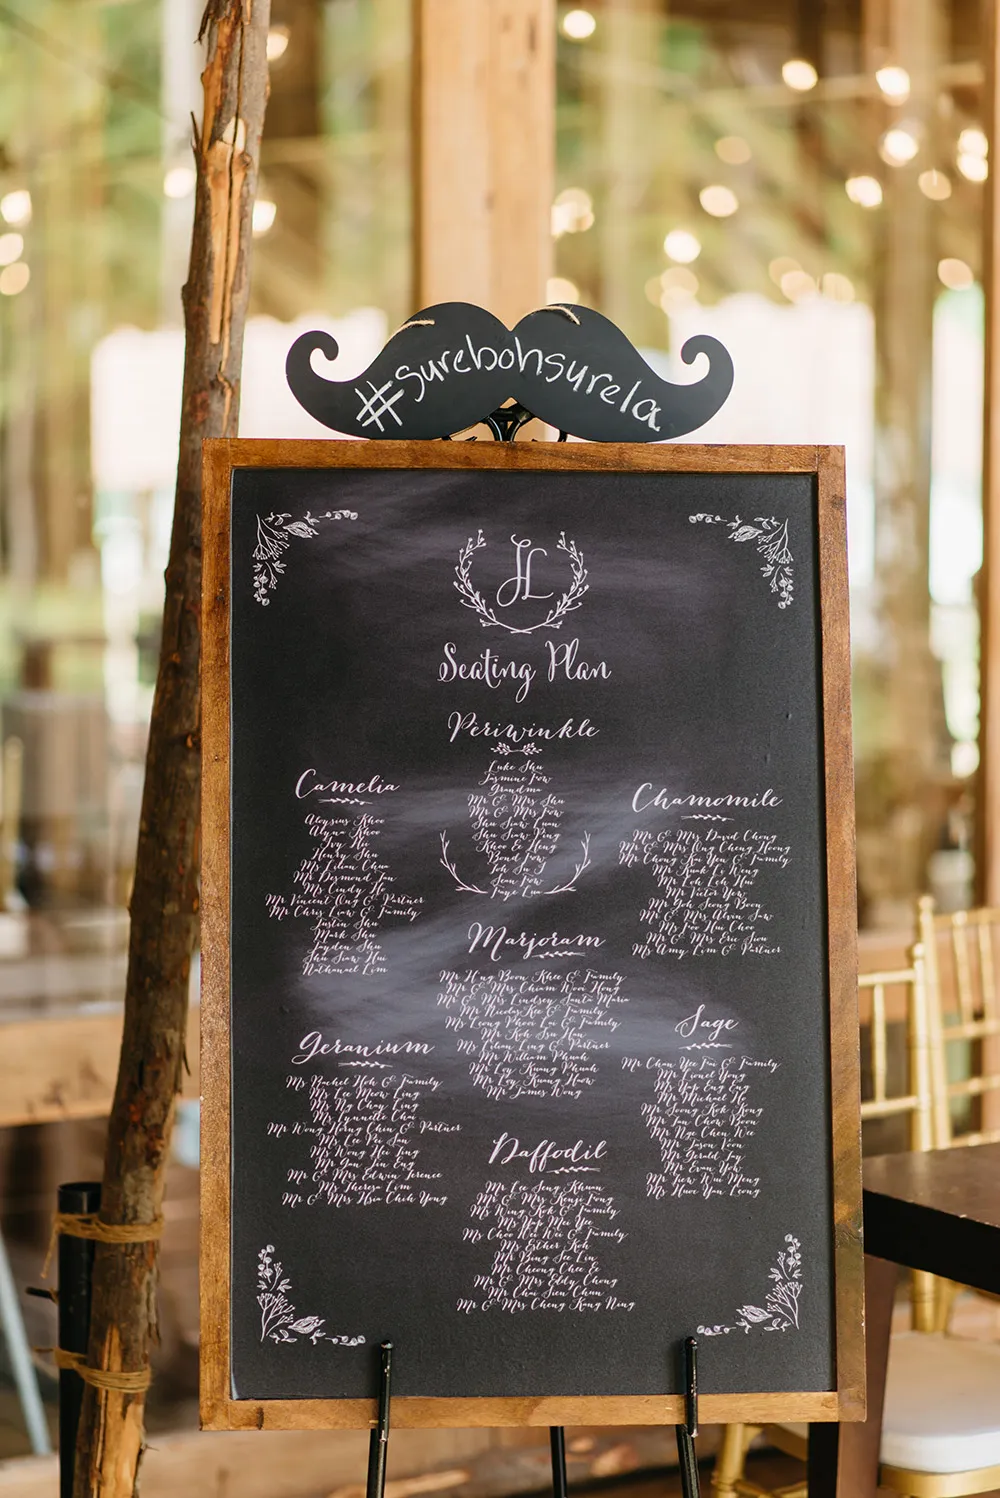 #surebohsurela
JL
Seating Plan
Periwinkle
Luke Shu
Jasmine Fow
Grandma
Mr & Mrs Shu
Mr & Mrs Fow
Shu Siaw Luan
Shu Siaw Ping
Khoo & Heng
Bond Fow
Toh Su I
Sean Fow
Faye Lua
Camelia
Aloysius Khoo
Alyna Khoo
Ivy Hii
Henry Shu
Ms Lilian Chua
Mr Desmond Tan
Ms Cindy He
Mr Vincent Ang & Partner
Mr Chris Liaw & Family
Justin Shu
Mark Shu
Jayden Shu
Shu Siaw Hui
Nathanael Lim
Chamomile
Mr & Mrs David Chong
Mr & Mrs Ung Cheng Hoong
Mr Chong Ka Yen & Family
Mr Kuak Li Weng
Mr Loh Loh Hui
Mr Victor Yew
Mr Goh Seong Boon
Mr & Mrs Alvin Saw
Ms Foo Hui Choo
Mr & Mrs Eric Siow
Ms Amy Lim & Partner
Marjoram
Mr Hng Boon Khee & Family
Mr & Mrs Chiam Woei Hong
Mr & Mrs Lindsey Santa Maria
Mr Nicolas Kee & Family
Ms Leong Phooi Lai & Family
Mr Koh Szu Hau
Ms Eileen Ling & Partner
Mr William Phuah
Mr Loy Kuang Phuah
Mr Loy Kuang Haow
Mr James Wong
Geranium
Ms Rachel Hoh & Family
Ms Lee Meow Ling
Ms Ng Chay Ling
Ms Lynnette Chai
Mr Wong Herng Chin & Partner
Ms Lee Pei San
Mr Wong Hei Ting
Mr Gan Jin Eng
Mr & Mrs Edwin Terence
Ms Theresa Lim
Mr & Mrs Hsia Chih Yung
Sage
Mr Chan Yee Fai & Family
Mr Lionel Yong
Ms Yap Eng Eng
Mr Michael He
Mr Soong Kok Kong
Mr Tan Chow Boon
Mr Nge Chen Wee
Mr Jason Voon
Mr Gerald Tay
Mr Evan Yow
Mr Yew Wui Meng
Ms Huoi Yan Leong
Daffodil
Mr Lee Seng Khuan
Mr & Mrs Kenji Fong
Ms Wing Kok & Family
Ms Yap Mei Yee
Ms Choo Wei Wei & Family
Ms Esther Koh
Mr Bing See Liu
Mr Cheong Chee E
Mr & Mrs Eddy Chong
Mr Chai Sien Chan
Mr & Mrs Cheng Kang Ning